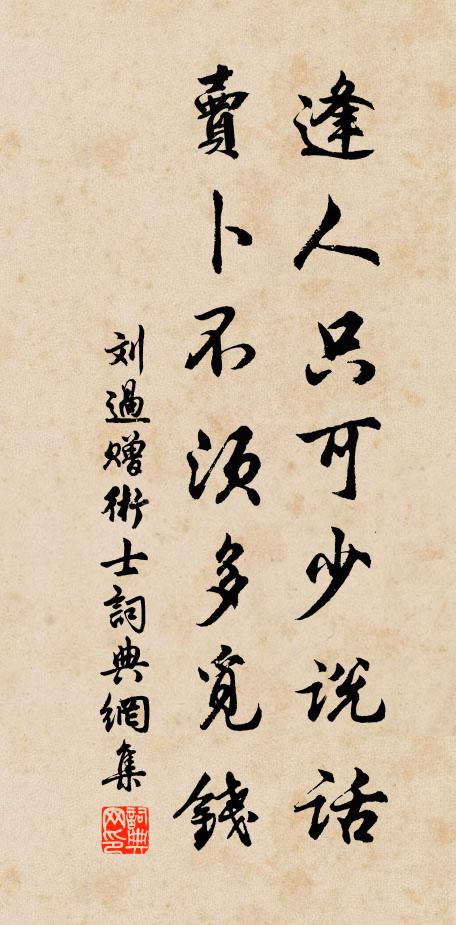 逢人只可少说话
賣卜不須多覓錢
刘過贈術士詞典網集
詞典网印